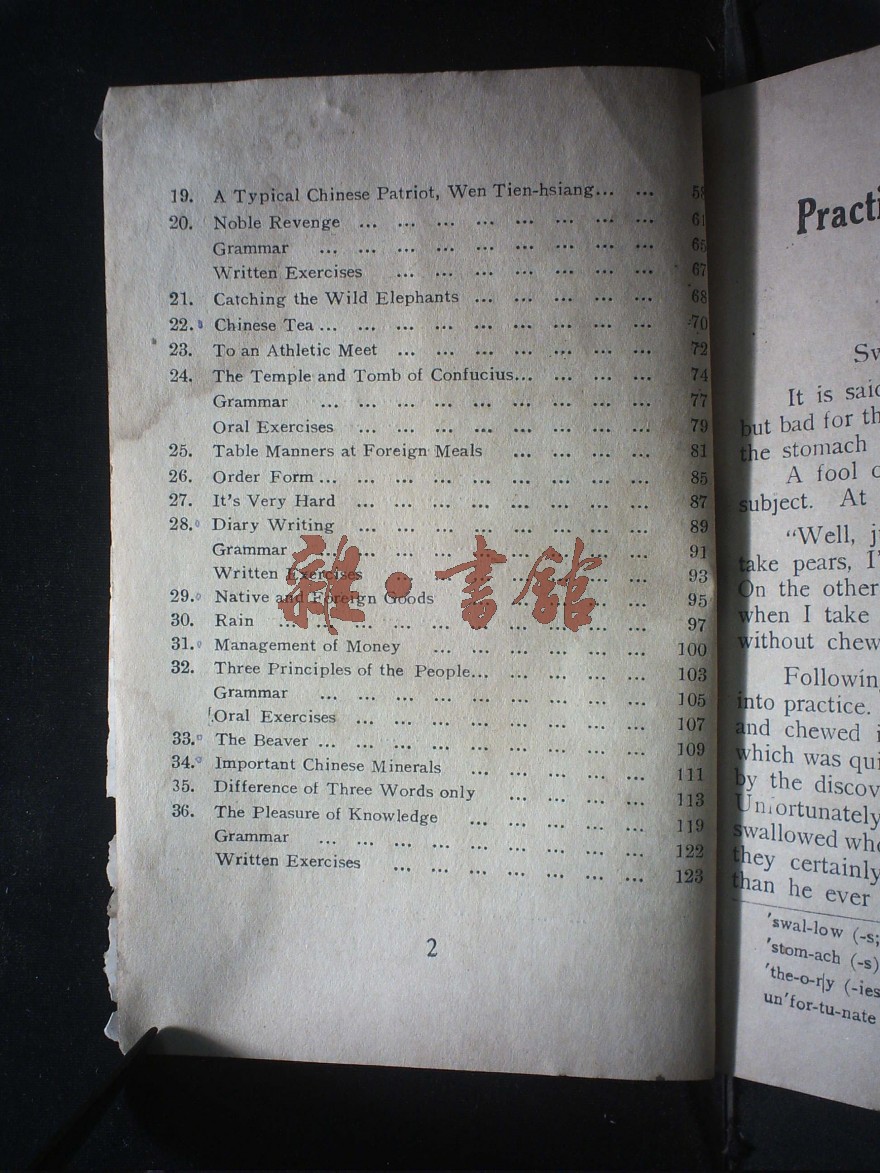 19. A Typical Chinese Patriot, Wen Tien-hsiang... ... 58
20. Noble Revenge ... ... ... ... ... ... ... ... 61
Grammar ... ... ... ... ... ... ... ... ... 65
Written Exercises ... ... ... ... ... ... ... 67
21. Catching the Wild Elephants ... ... ... ... ... 68
22. Chinese Tea ... ... ... ... ... ... ... ... ... 70
23. To an Athletic Meet ... ... ... ... ... ... ... 72
24. The Temple and Tomb of Confucius... ... ... ... 74
Grammar ... ... ... ... ... ... ... ... ... 77
Oral Exercises ... ... ... ... ... ... ... ... 79
25. Table Manners at Foreign Meals ... ... ... ... 81
26. Order Form ... ... ... ... ... ... ... ... ... 85
27. It's Very Hard ... ... ... ... ... ... ... ... 87
28. Diary Writing ... ... ... ... ... ... ... ... 89
Grammar ... ... ... ... ... ... ... ... ... 91
Written Exercises ... ... ... ... ... ... ... 93
29. Native and Foreign Goods ... ... ... ... ... ... 95
30. Rain ... ... ... ... ... ... ... ... ... ... 97
31. Management of Money ... ... ... ... ... ... 100
32. Three Principles of the People... ... ... ... ... 103
Grammar ... ... ... ... ... ... ... ... ... 105
Oral Exercises ... ... ... ... ... ... ... ... 107
33. The Beaver ... ... ... ... ... ... ... ... ... 109
34. Important Chinese Minerals ... ... ... ... ... 111
35. Difference of Three Words only ... ... ... ... 113
36. The Pleasure of Knowledge ... ... ... ... ... 119
Grammar ... ... ... ... ... ... ... ... ... 122
Written Exercises ... ... ... ... ... ... ... 123
2
雜·書館
Practi
Sw
It is said
but bad for th
the stomach
A fool
subject. At
"Well, j
take pears, I'
On the other
when I take
without chew
Following
into practice.
and chewed i
which was qui
by the discov
Unfortunately
swallowed who
they certainly
than he ever
'swal-low (-s;
'stom-ach (-s)
'the-o-ry (-ies
un'for-tu-nate